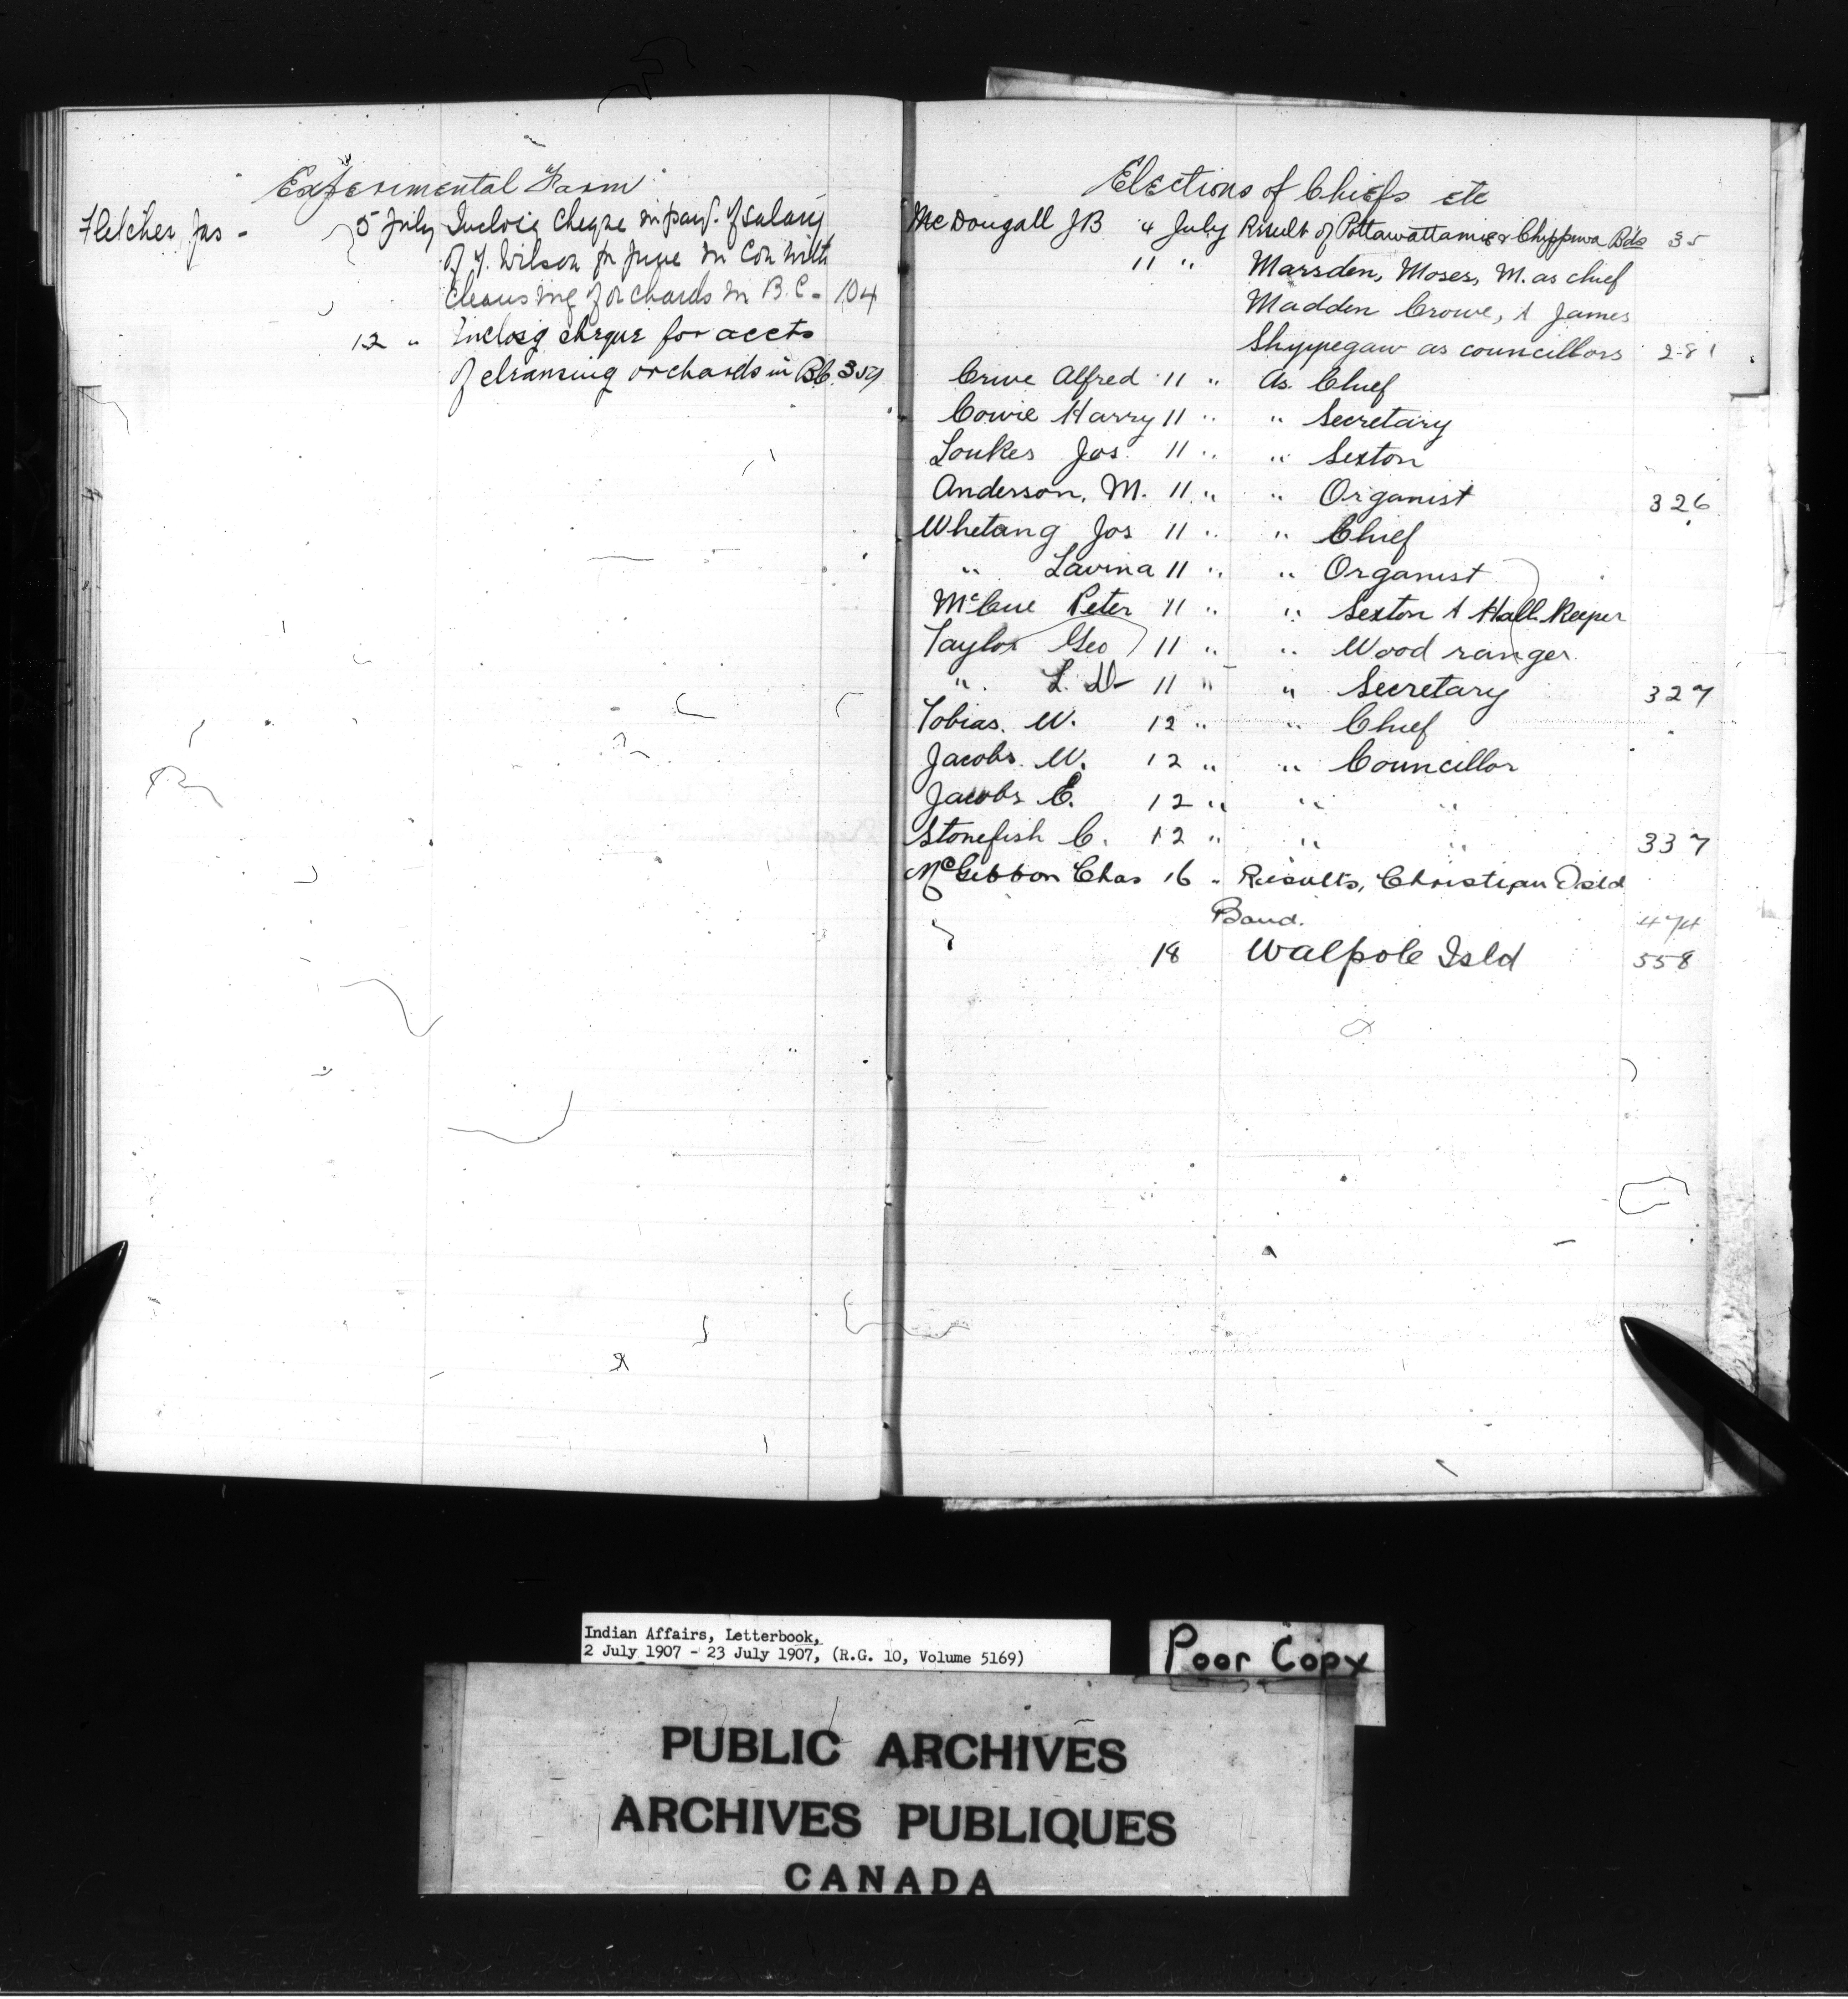 Experimental Farm
Fletcher Jas - 5 July Inclosig Cheque in paymt. of salary
of T. Wilson for June in Con with
cleansing of orchards in B.C. 104
12 " Inclosg cheque for accts
of cleansing orchards in B.C. 354
Elections of Chiefs etc
McDougall JB 4 July Result of Pottawattamie & Chippewa Bds 35
11 " Marsden, Moses, M. as chief
Madden Crowe, & James
Shyppegaw as councillors 281
Crowe Alfred 11 " As Chief
Cowie Harry 11 " " Secretary
Loukes Jos. 11 " " Sexton
Anderson, M. 11 " " Organist 326
Whetung Jos 11 " " Chief
" Lavina 11 " " Organist
McCue Peter 11 " " Sexton & Hall Keeper
Taylor Geo 11 " " Wood ranger
" L. D 11 " " Secretary 327
Tobias. W. 12 " " Chief
Jacobs W. 12 " " Councillor
Jacobs C. 12 " " "
Stonefish C. 12 " " " 337
McGibbon Chas 16 " Results, Christian Isld
Band. 474
18 Walpole Isld 558
Indian Affairs, Letterbook,
2 July 1907 - 23 July 1907, (R.G. 10, Volume 5169)
Poor Copy
PUBLIC ARCHIVES
ARCHIVES PUBLIQUES
CANADA